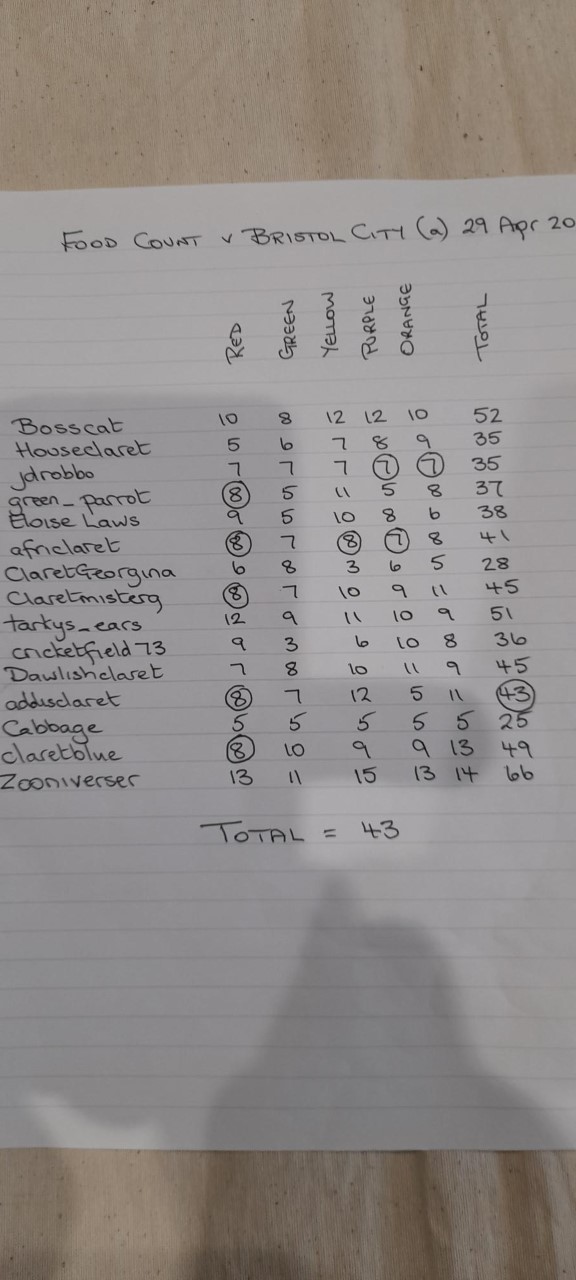 FOOD COUNT v BRISTOL CITY (a) 29 Apr 20
RED GREEN YELLOW PURPLE ORANGE TOTAL
Bosscat 10 8 12 12 10 52
Houseclaret 5 6 7 8 9 35
jdrobbo 7 7 7 7 7 35
green_parrot 8 5 11 5 8 37
Eloise Laws 9 5 10 8 6 38
africlaret 8 7 8 7 8 41
ClaretGeorgina 6 8 3 6 5 28
Claretmisterg 8 7 10 9 11 45
tarkys_ears 12 9 11 10 9 51
cricketfield73 9 3 6 10 8 36
Dawlishclaret 7 8 10 11 9 45
addisclaret 8 7 12 5 11 43
Cabbage 5 5 5 5 5 25
claretblue 8 10 9 9 13 49
Zooniverser 13 11 15 13 14 66
TOTAL = 43